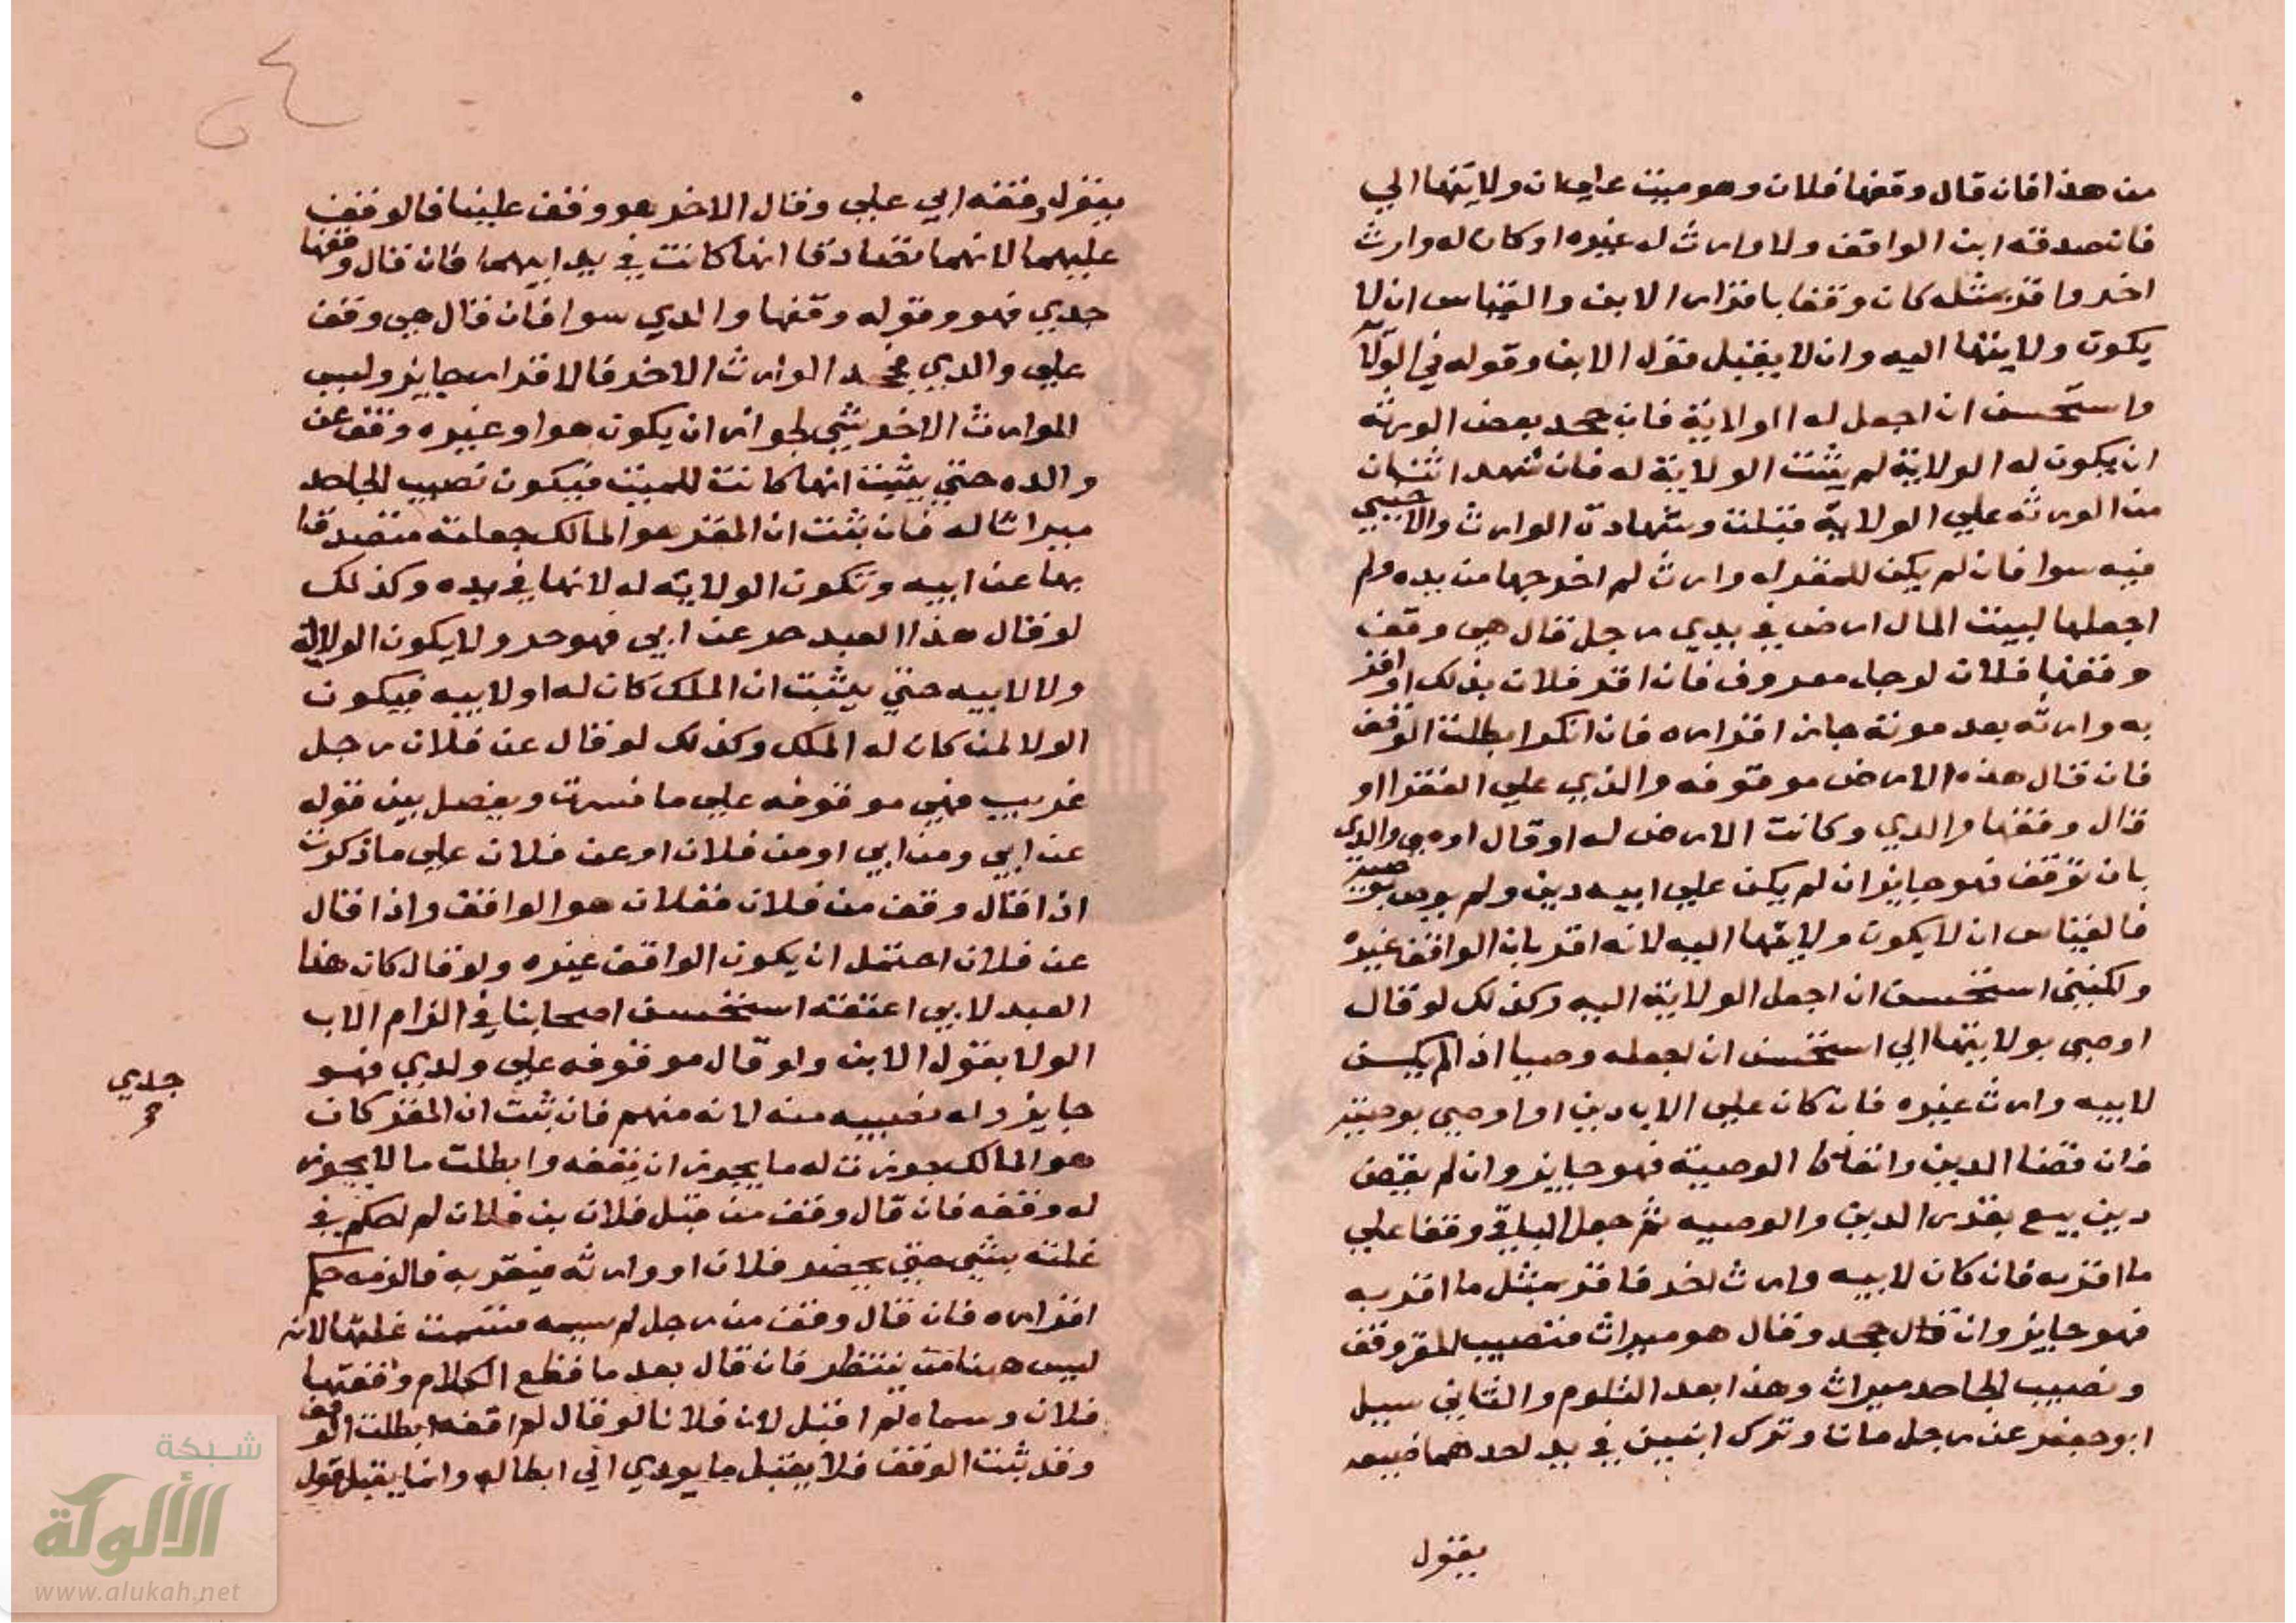 من هذا فان قال وقفها فلان وهو ميت علي ان ولايتها الي
فان صدقه ابن الواقف ولا وارث له غيره او كان له وارث
اخر واقر بمثله كان وقفا باقرار الابن والقياس ان لا
يكون ولايتها اليه وان لا يقبل قول الابن وقوله في الولا
واستحسن ان اجعل له الولاية فان جحد بعض الورثه
ان يكون له الولاية لم يثبت الولاية له فان شهد اثنان
من الورثه علي الولاية قبلت وشهادة الوارث والاجنبي
فيه سوا فان لم يكن للمقر له وارث لم اخرجها من يده ولم
اجعلها لبيت المال ارض في يدي رجل قال هي وقف
وقفها فلان لرجل معروف فان اقر فلان بذلك او اقر
به وارثه بعد موته جاز اقراره فان انكرا بطلت الوقف
فان قال هذه الارض موقوفه والذي علي الفقرا او
قال وقفها والدي وكانت الارض له او قال اوصي والدي
بان توقف فهو جايز ان لم يكن علي ابيه دين ولم يوص بوصية
فالقياس ان لا يكون ولايتها اليه لانه اقر بان الواقف غيره
ولكنني استحسن ان اجعل الولاية اليه وكذلك لو قال
اوصي بولايتها الي استحسن ان نجعله وصيا اذا لم يكن
لابيه وارث غيره فان كان علي الاب دين او اوصي بوصية
فان قضا الدين وانفذ الوصية فهو جايز وان لم يقض
دين بيع بقدر الدين والوصيه ثم جعل الباقي وقفا علي
ما اقر به فان كان لابيه وارث اخر فاقر بمثل ما اقر به
فهو جايز وان قال جحد وقال هو ميراث فنصيب المقر وقف
ونصيب الجاحد ميراث وهذا بعد التلوم والتاني سيل
ابو جعفر عن رجل مات وترك ابنين في يد احدهما ضيعه
يقول
يقول وقفه ابي علي وقال الاخر هو وقف علينا فالوقف
عليهما لانهما تصادقا انها كانت في يد ابيهما فان قال وقفها
جدي فهو وقوله وقفها والدي سوا فان قال هي وقف
علي والدي فجحد الوارث الاخر فالاقرار جايز وليس
الوارث الاخر بشي لجواز ان يكون هو او غيره وقف عن
والده حتي يثبت انها كانت للميت فيكون نصيب الجاحد
ميراثا له فان ثبت ان المقر هو المالك جعلته متصدقا
بها عن ابيه وتكون الولايه له لانها في يده وكذلك
لو قال هذا العبد حر عن ابي فهو حر ولا يكون الولا له
ولا لابيه حتي يثبت ان الملك كان له او لابيه فيكون
الولا لمن كان له الملك وكذلك لو قال عن فلان رجل
غريب فهي موقوفه علي ما فسرت ويفصل بين قوله
عن ابي ومن ابي او من فلان او عن فلان علي ما ذكرت
اذا قال وقف من فلان ففلان هو الواقف واذا قال
عن فلان احتمل ان يكون الواقف غيره ولو قال كان هذا
العبد لابي اعتقته استحسن اصحابنا في الزام الاب
الولا بقول الابن ولو قال موقوفه علي ولدي فهو
جايز وله نصيبه منه لانه منهم فان ثبت ان المقر كان
هو المالك جوزت له ما يجوز ان يقفه وابطلت ما لا يجوز
له وقفه فان قال وقف من قبل فلان بن فلان لم احكم في
غلته بشي حتي يحضر فلان او وارثه فيقر به فالزمه حكم
اقراره فان قال وقف من رجل لم يسمه قسمت غلتها لانه
ليس ههنا من ينتظر فان قال بعد ما قطع الكلام وقفها
فلان وسماه لم اقبل لان فلانا لو قال لم اقفه ابطلت الوقف
وقد ثبت الوقف فلا يقبل ما يودي الي ابطاله وانما يقبل قول
جدي
شبكة
الألوكة
www.alukah.net